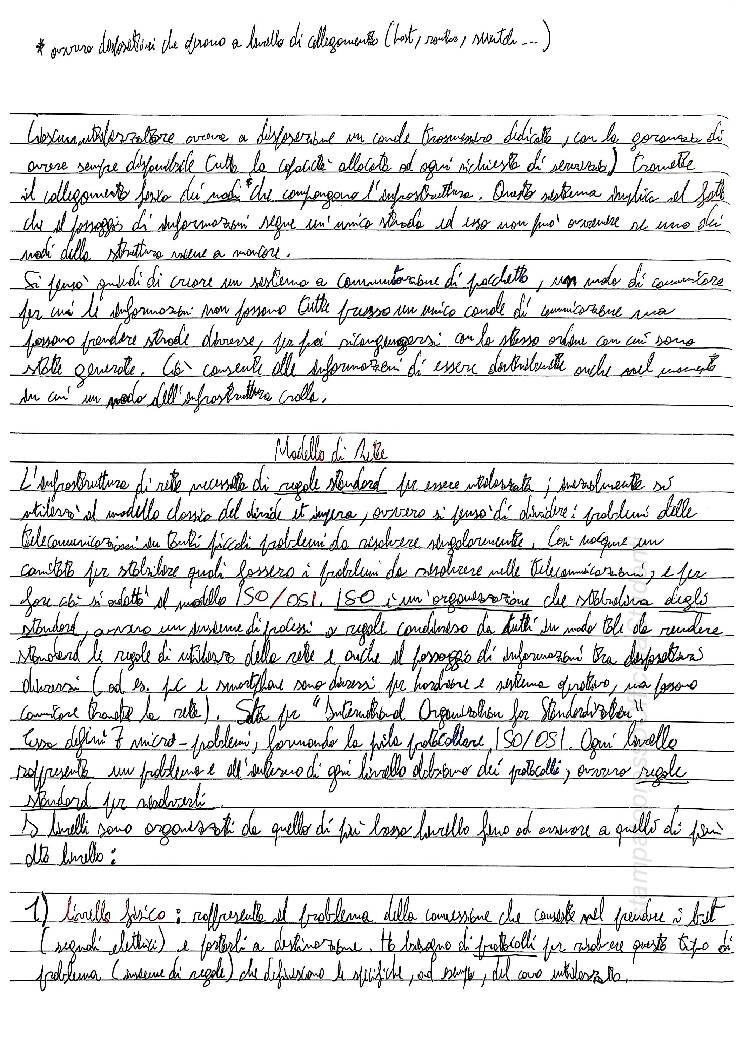 * ovvero dispositivi che operano a livello di collegamento (host, router, switch ...)
Ciascun utilizzatore aveva a disposizione un canale trasmissivo dedicato, con la garanzia di
avere sempre disponibile tutta la capacità allocata ad ogni richiesta di servizio) tramite
il collegamento fisico dei nodi* che compongono l'infrastruttura. Questo sistema implica il fatto
che il passaggio di informazioni segue un'unica strada ed esso non può avvenire se uno dei
nodi della struttura viene a mancare.
Si pensò quindi di creare un sistema a commutazione di pacchetto, un modo di comunicare
per cui le informazioni non passano tutte presso un unico canale di comunicazione ma
possono prendere strade diverse, per poi ricongiungersi con lo stesso ordine con cui sono
state generate. Ciò consente alle informazioni di essere distribuite anche nel momento
in cui un nodo dell'infrastruttura crolla.
Modello di Rete
L'infrastruttura di rete necessita di regole standard per essere utilizzata; inizialmente si
utilizzò il modello classico del divide et impera, ovvero si pensò di dividere i problemi delle
telecomunicazioni in tanti piccoli problemi da risolvere singolarmente. Così nacque un
comitato per stabilire quali fossero i problemi da risolvere nelle telecomunicazioni, e per
fare ciò si adottò il modello ISO/OSI. ISO è un'organizzazione che stabiliva degli
standard, ovvero un insieme di processi o regole condiviso da tutti in modo tale da rendere
standard le regole di utilizzo della rete e anche il passaggio di informazioni tra dispositivi
diversi (ad es. pc e smartphone sono diversi per hardware e sistema operativo, ma possono
comunicare tramite la rete). Sta per "International Organization for Standardization"
Essa definì 7 micro-problemi, formando la pila protocollare ISO/OSI. Ogni livello
rappresenta un problema e all'interno di ogni livello abbiamo dei protocolli, ovvero regole
standard per risolverli
I livelli sono organizzati da quello di più basso livello fino ad arrivare a quello di più
alto livello:
1) livello fisico: rappresenta il problema della connessione che consiste nel prendere i bit
(segnali elettrici) e portarli a destinazione. Ho bisogno di protocolli per risolvere questo tipo di
problema (insieme di regole) che definiscono le specifiche, ad esempio, del cavo utilizzato.